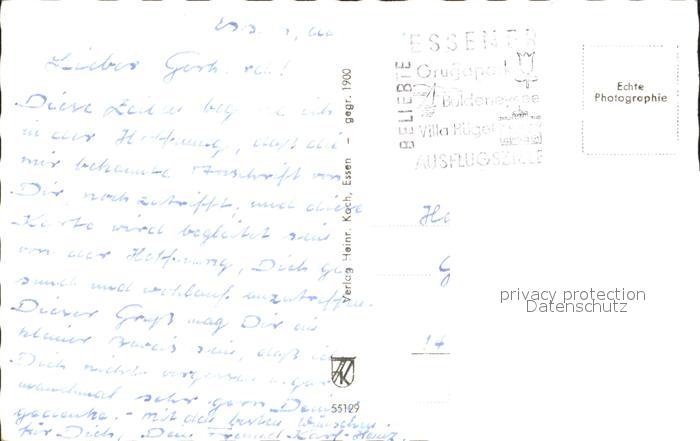 Lieber Gerh
Diese Zeilen ich
in der Hoffnung, daß die
mir bekannte Anschrift von
Dir noch zutrifft, und diese
Karte wird begleitet sein
von der Hoffnung, Dich ge
sund und wohlauf anzutreffen.
Dieser Gruß mag Dir ein
kleiner Beweis sein, daß ich
Dich nicht vergessen
manchmal sehr gern Dein
gedenke. - mit den besten Wünschen
für Dich, Dein Freund Karl-Heinz
Verlag Heinr. Koch, Essen - gegr. 1900
55129
BELIEBTE
ESSENER
Grugapark
Baldeneysee
Villa Hügel
AUSFLUGSZIELE
Echte
Photographie
He
G
14
privacy protection
Datenschutz